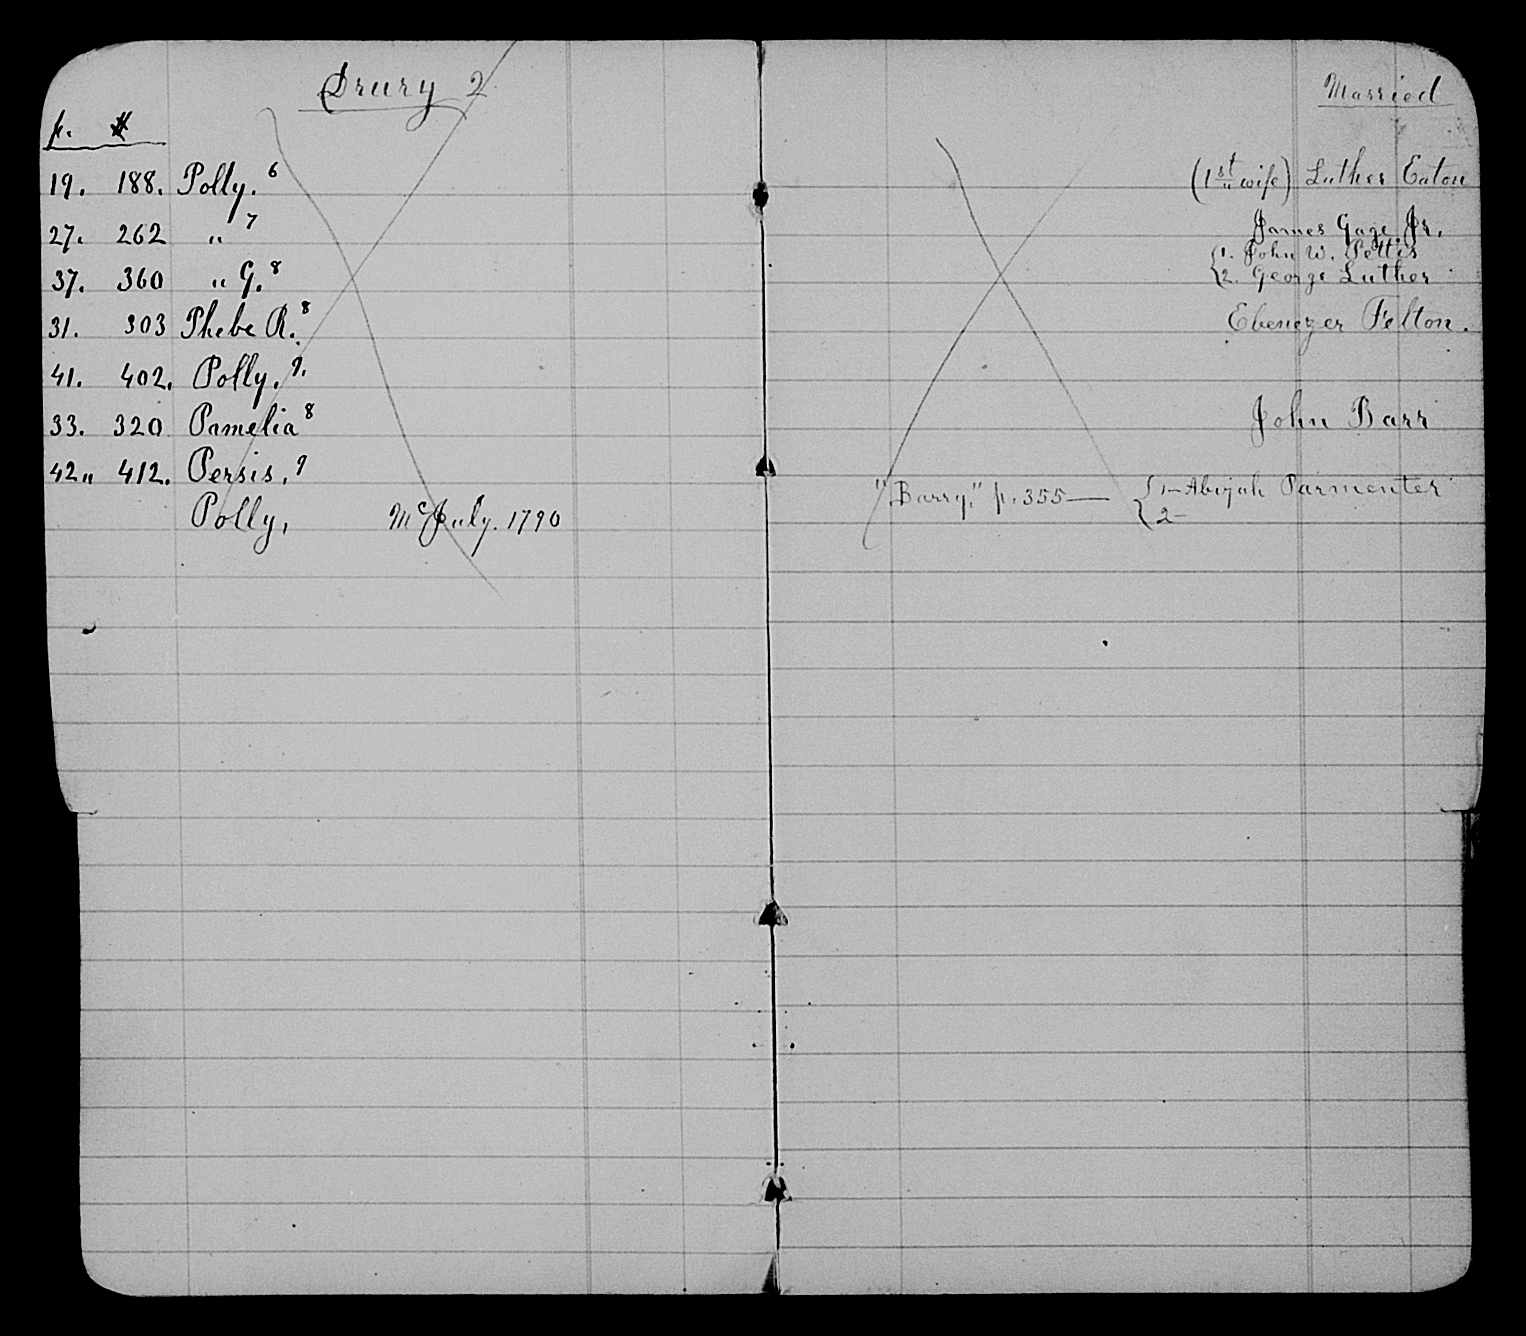 Drury 2
Married
p. #
19. 188. Polly.⁶ (1st wife) Luther Eaton
27. 262 " ⁷ James Gage Jr.
37. 360 " G.⁸ {1. John W. Pettis
2. George Luther
31. 303 Phebe R.⁸ Ebenezer Felton.
41. 402. Polly.⁹
33. 320 Pamelia⁸ John Barr
42" 412. Persis.⁹
Polly, July. 1790 "Barry," p. 355— {1—Abijah Parmenter
2—